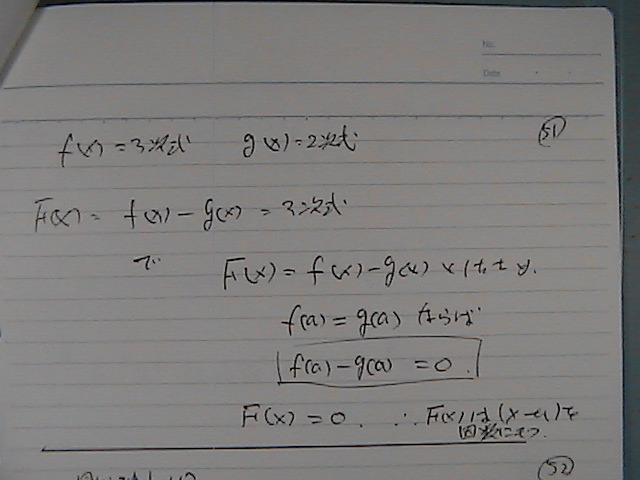 No.
Date
f(x)=3次式 g(x)=2次式 (51)
F(x)= f(x)-g(x) =3次式
で F(x)=f(x)-g(x)
f(a)=g(a) ならば
f(a)-g(a)=0.
F(x)=0. ∴ F(x)は(x-a)を
因数にもつ.
(52)